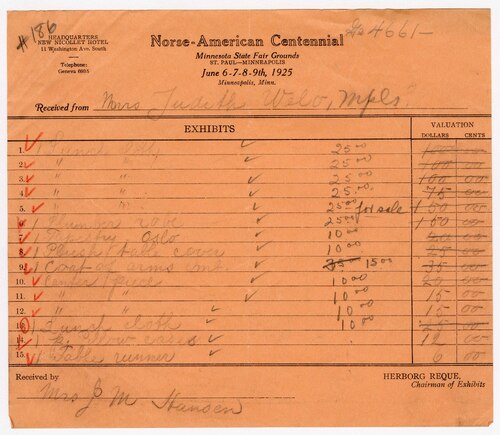 # 186
HEADQUARTERS
NEW NICOLLET HOTEL
11 Washington Ave. South
Telephone:
Geneva 6908
Norse-American Centennial
Minnesota State Fair Grounds
ST. PAUL—MINNEAPOLIS
June 6-7-8-9th, 1925
Minneapolis, Minn.
4661-
Received from Mrs Judith Welo, Mpls.
EXHIBITS
VALUATION
DOLLARS CENTS
1. ✓ 1 Lunch cloth ✓ 25 00
2. ✓ 1 " " ✓ 25 00 100 00
3. ✓ 1 " " ✓ 25 00 100 00
4. ✓ 1 " " ✓ 25 00 75 00
5. ✓ 1 " " ✓ 25 00 for sale 1 50 00
6. ✓ 1 ✓ 25 00 1 50 00
7. ✓ 1 Oslo ✓ 10 00
8. ✓ 1 table cover ✓ 10 00
9. ✓ 1 Coat of arms ✓ 35 15 00 35 00
10. ✓ 1 Center piece ✓ 10 00 20 00
11. ✓ 1 " " ✓ 10 00 15 00
12. ✓ 1 " " ✓ 10 00 15 00
13. 1 Lunch cloth ✓ 10 00 25 00
14. ✓ 1 Pillow cases ✓ 12 00
15. ✓ 1 Table runner ✓ 6 00
Received by
Mrs J M Hansen
HERBORG REQUE,
Chairman of Exhibits